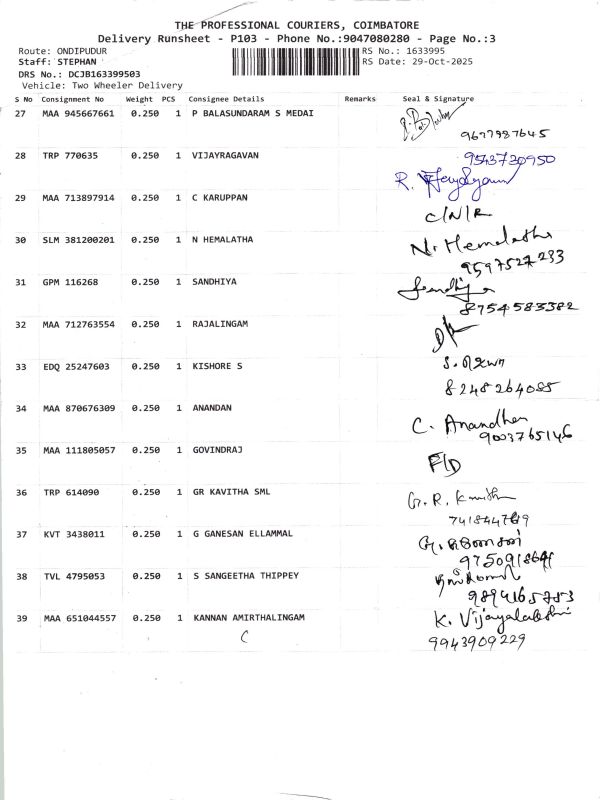 THE PROFESSIONAL COURIERS, COIMBATORE
Delivery Runsheet - P103 - Phone No.:9047080280 - Page No.:3
Route: ONDIPUDUR
RS No.: 1633995
Staff: STEPHAN
RS Date: 29-Oct-2025
DRS No.: DCJB163399503
Vehicle: Two Wheeler Delivery
S No Consignment No Weight PCS Consignee Details Remarks Seal & Signature
27 MAA 945667661 0.250 1 P BALASUNDARAM S MEDAI
9677987645
28 TRP 770635 0.250 1 VIJAYRAGAVAN
9543730950
R.
29 MAA 713897914 0.250 1 C KARUPPAN
C/N/R
30 SLM 381200201 0.250 1 N HEMALATHA
N. Hemalatha
9597527233
31 GPM 116268 0.250 1 SANDHIYA
Sandhiya
8754583382
32 MAA 712763554 0.250 1 RAJALINGAM
D/L
33 EDQ 25247603 0.250 1 KISHORE S
8248264085
34 MAA 870676309 0.250 1 ANANDAN
C. Anandhan
9003765146
35 MAA 111805057 0.250 1 GOVINDRAJ
F/D
36 TRP 614090 0.250 1 GR KAVITHA SML
G. R. Kavitha
37 KVT 3438011 0.250 1 G GANESAN ELLAMMAL
G. கணேசன்
38 TVL 4795053 0.250 1 S SANGEETHA THIPPEY
9894165753
39 MAA 651044557 0.250 1 KANNAN AMIRTHALINGAM
K. Vijayalakshmi
C
9943909229